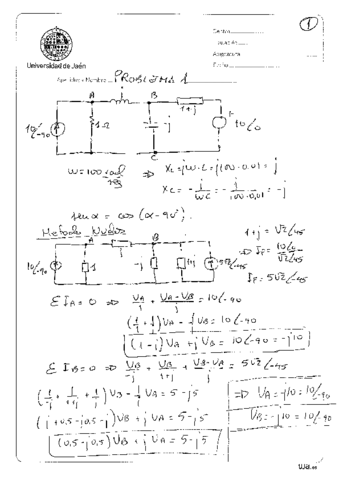 1
Universidad de Jaén
PROBLEMA 1
A B 1+j
10∠-90 1Ω -j 10∠0
C
W=100 rad/seg ⇒ XL=jW·L=j100·0.01=j
XC=-j/WC=-j/100·0.01=-j
sen α = cos (α-90°).
Metodo Nudos
1+j = √2∠45
⇒ IF=10∠0/√2∠45
IF=5√2∠-45
A j B
10∠-90 1 -j 1+j 5√2∠-45
Σ IA=0 ⇒ VA/1 + VA-VB/j = 10∠-90
(1/1+1/j)VA - 1/j VB = 10∠-90
(1-j)VA + jVB = 10∠-90 = -j10
Σ IB=0 ⇒ VB/-j + VB/1+j + VB-VA/j = 5√2∠-45
(1/-j + 1/1+j + 1/j) VB - 1/j VA = 5-j5
(j+0,5-j0,5-j)VB + jVA = 5-j5
(0,5-j0,5)VB + jVA = 5-j5
⇒ VA=-j10=10∠-90
VB=-j10=10∠-90